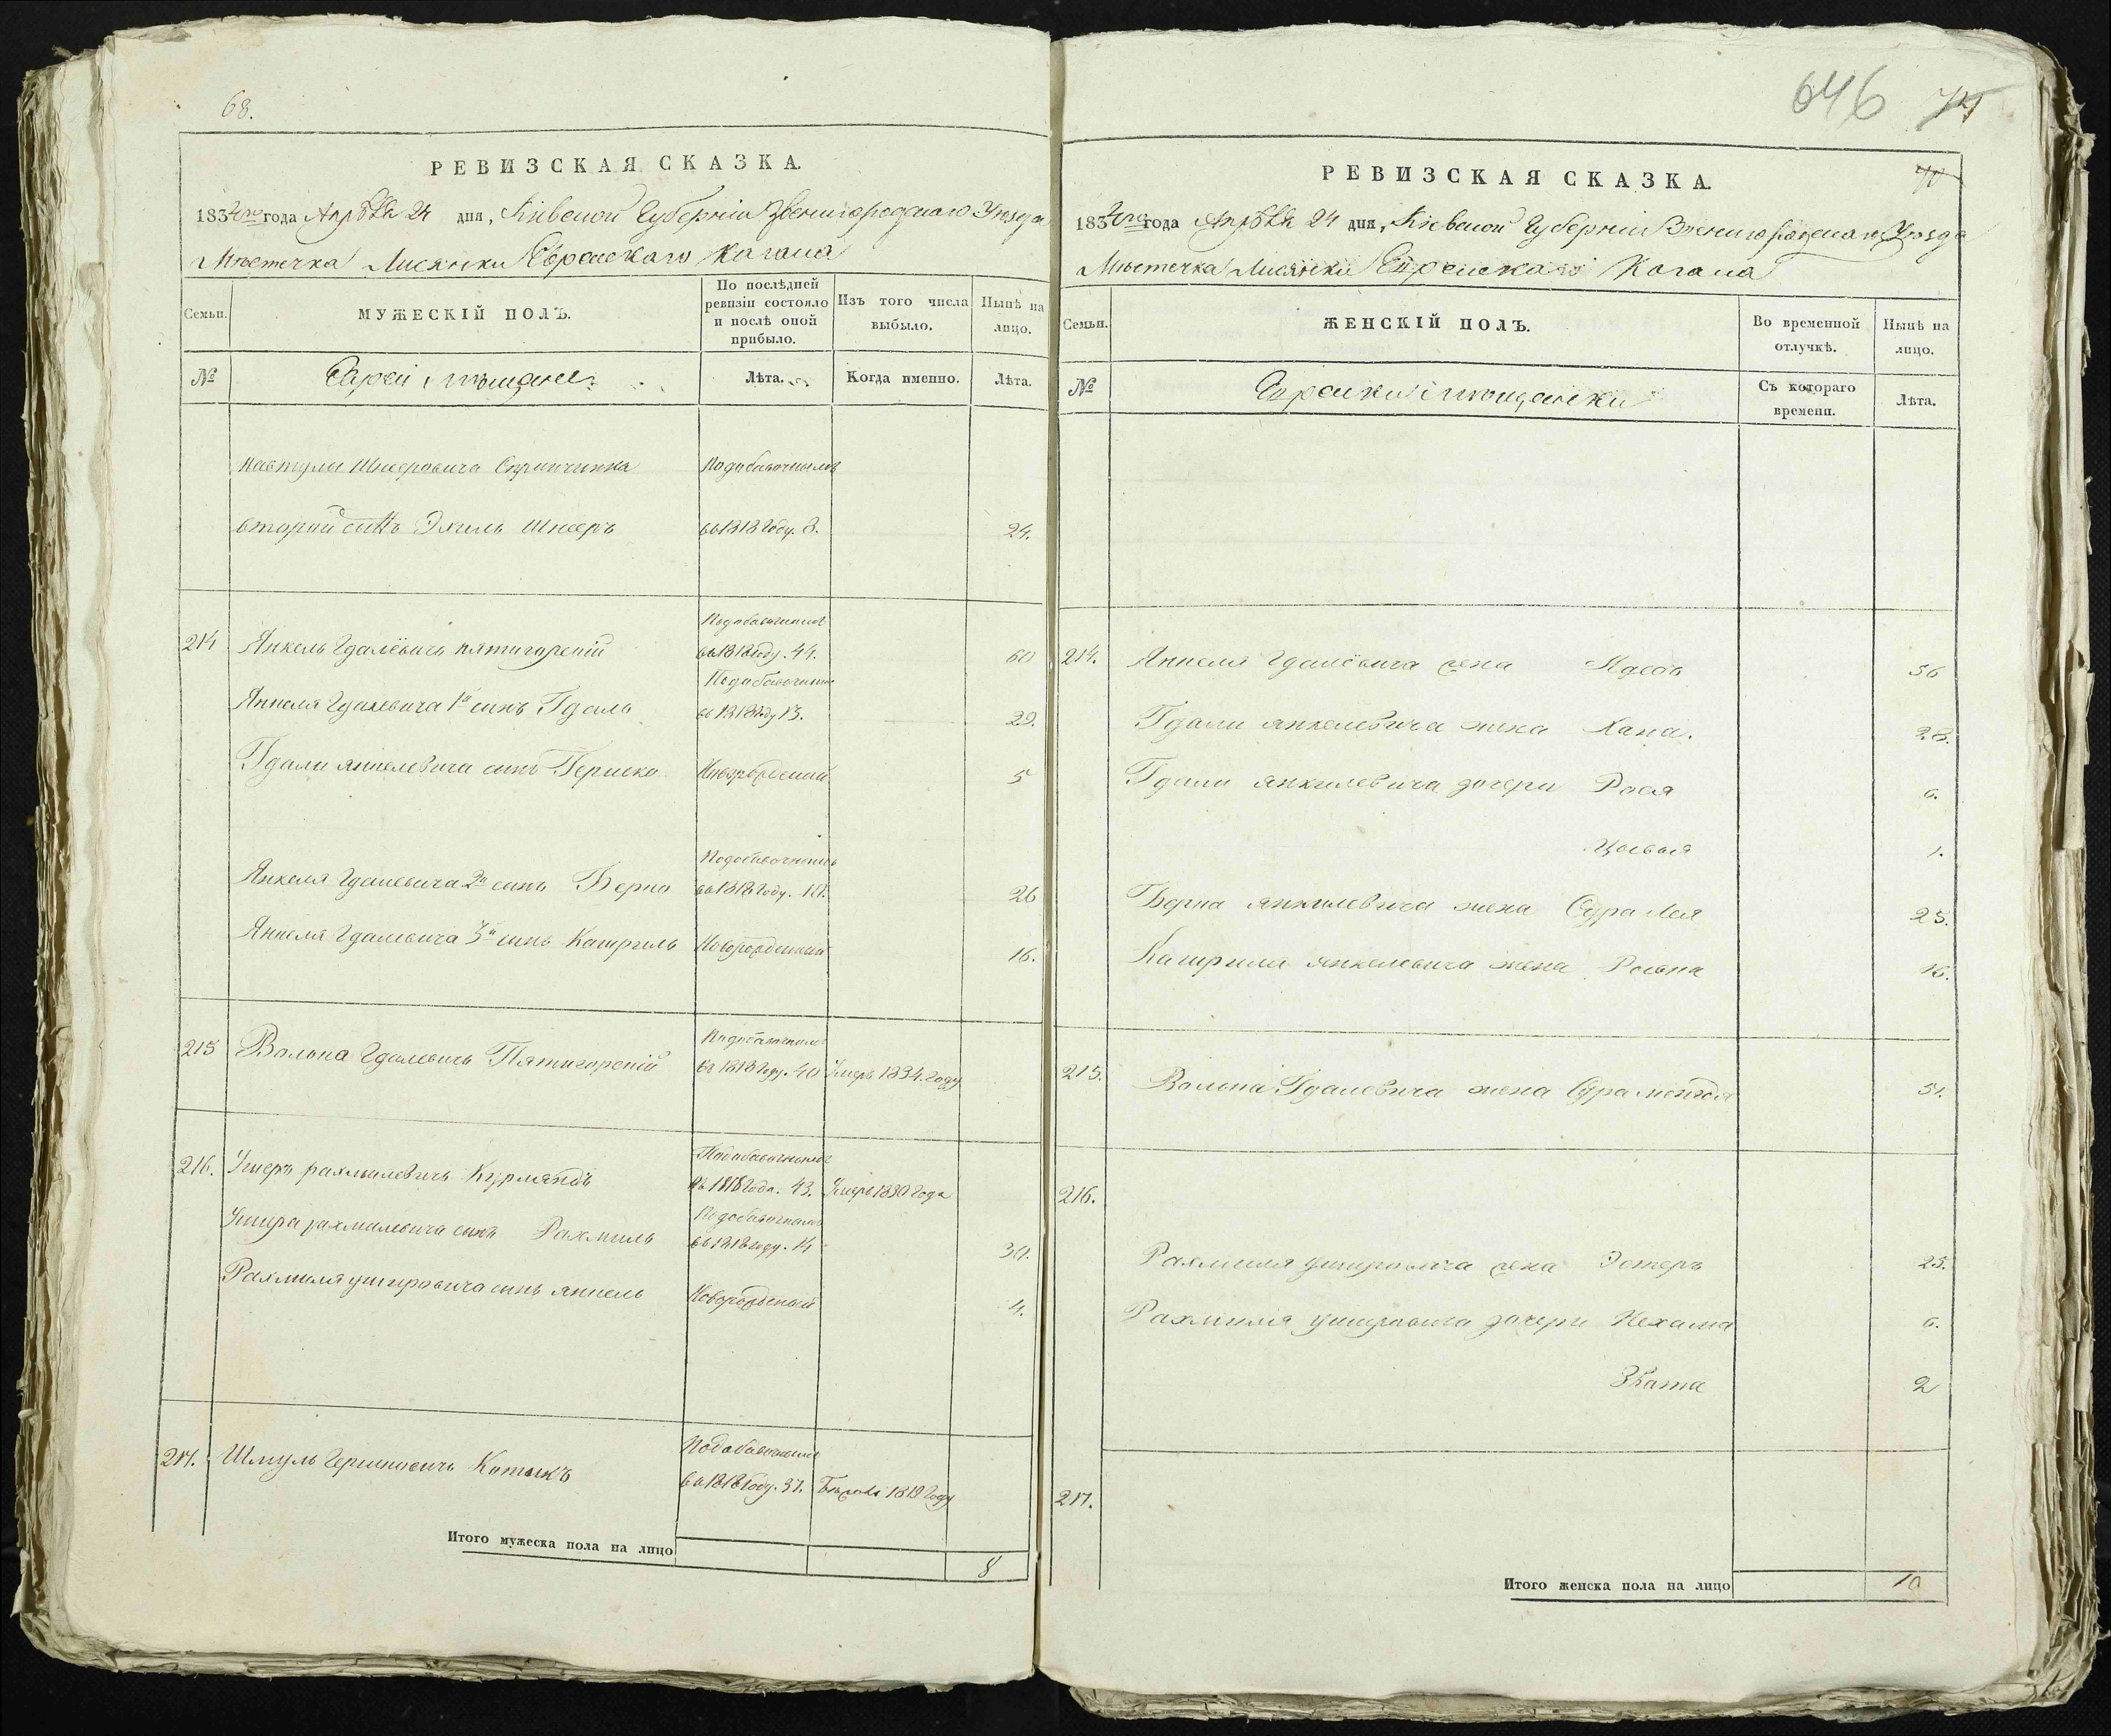 68.
РЕВИЗСКАЯ СКАЗКА.
1834го года Апрѣля 24 дня, Кіевской Губерніи Звенигородскаго Уѣзда
Мѣстечка Лисянки Еврейскаго Кагала
Семьи.
МУЖЕСКІЙ ПОЛЪ.
По послѣдней ревизіи состояло и послѣ оной прибыло.
Изъ того числа выбыло.
Нынѣ на лицо.
№
Евреи мѣщане.
Лѣта.
Когда именно.
Лѣта.
Шнееровича
Подобавочнымъ
второй сынъ Эхиль Шнееръ
въ 1818 Году. 8.
24.
Подобавочнымъ
214
Янкель Гдалёвичь пятигорскій
въ 1818 Году. 44.
60
Подобавочнымъ
Янкеля Гдалевича 1й сынъ Гдаль
въ 1818 Году 13.
29.
Гдали янкелевича сынъ Гершко
Новорожденный
5
Подобавочнымъ
Янкеля Гдалевича 2й сынъ Берко
въ 1818 Году. 10.
26
Янкеля Гдалевича 3й сынъ Кашриль
Новорожденный
16.
Подобавочнымъ
215
Волько Гдалевичь Пятигорскій
въ 1818 Году. 40
Умеръ 1834. Году
Подобавочнымъ
216.
Ушеръ рахмилевичь Курляндъ
въ 1818 Года. 43.
Умеръ 1830 Года
Подобавочнымъ
Ушера рахмилевича сынъ Рахмиль
въ 1818 году. 14
30.
Рахмиля ушеровича сынъ янкель
Новорожденный
4.
Подобавочнымъ
217.
Шмуль Гершковичь Котыкъ
въ 1818 Году. 37.
Бѣжалъ 1819 Году
Итого мужеска пола на лицо
8
646
РЕВИЗСКАЯ СКАЗКА.
1834го года Апрѣля 24 дня, Кіевской Губерніи Звенигородскаго Уѣзда
Мѣстечка Лисянки Еврейскаго Кагала
Семьи.
ЖЕНСКІЙ ПОЛЪ.
Во временной отлучкѣ.
Нынѣ на лицо.
№
Еврейки мѣщанки
Съ котораго времени.
Лѣта.
214.
Янкеля Гдалёвича жена
56
Гдали янкелевича жена Хана.
28.
Гдали янкилевича дочери Рося
6.
Цывья
1.
Берка янкилевича жена Сура Лея
25.
Кашриля янкелевича жена
16.
215.
Волька Гдалевича жена Сура
51.
216.
Рахмиля ушеровича жена Эстеръ
25.
Рахмиля ушеровича дочери Нехама
6.
Злата
2
217.
Итого женска пола на лицо
10